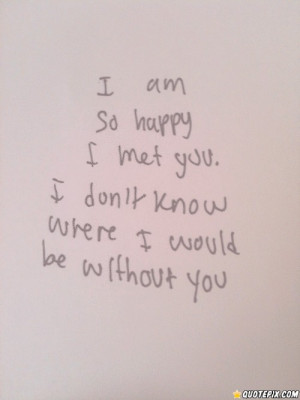 I am
So happy
I met you.
I don't know
where I would
be without you
QUOTEPIX.COM